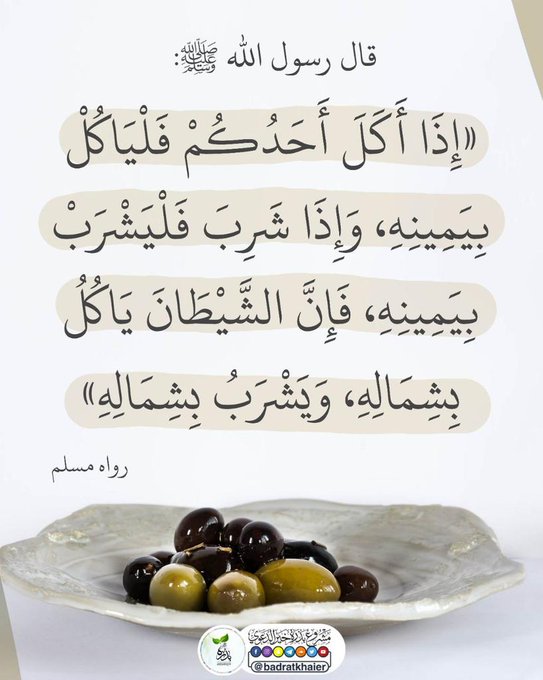 قال رسول الله ﷺ:
«إِذَا أَكَلَ أَحَدُكُمْ فَلْيَاكُلْ
بِيَمِينِهِ، وَإِذَا شَرِبَ فَلْيَشْرَبْ
بِيَمِينِهِ، فَإِنَّ الشَّيْطَانَ يَاكُلُ
بِشِمَالِهِ، وَيَشْرَبُ بِشِمَالِهِ»
رواه مسلم
مشروع بذرة خير الدعوي
@badratkhaier